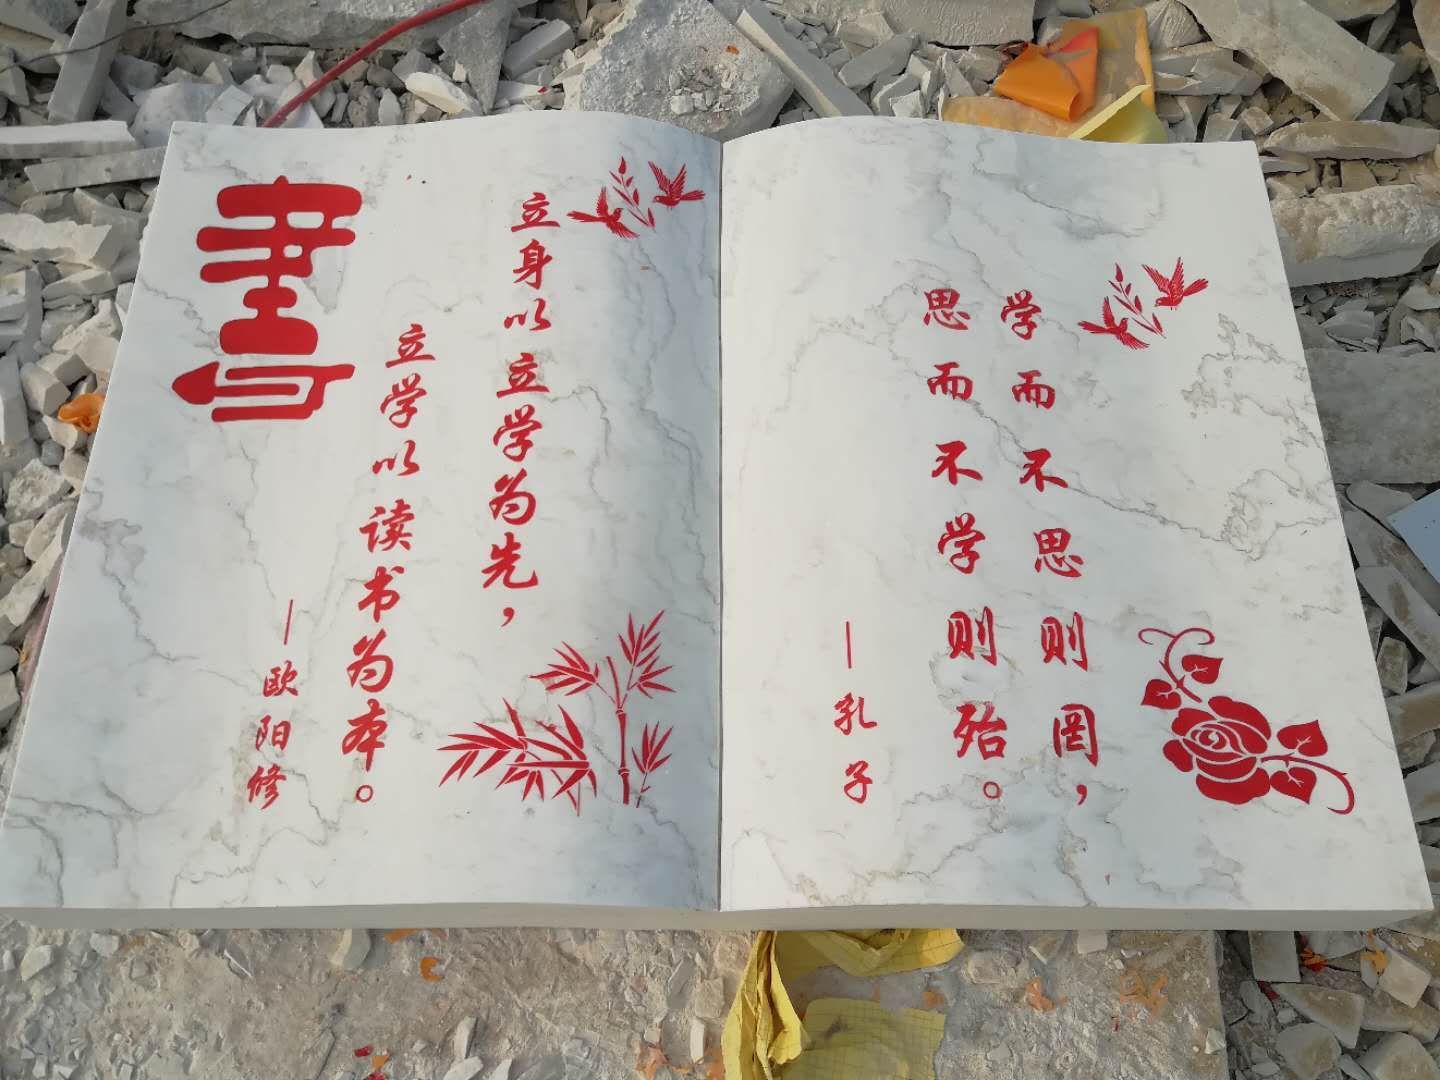 書
立身以立学为先，
立学以读书为本。
—欧阳修
学而不思则罔，
思而不学则殆。
—孔子